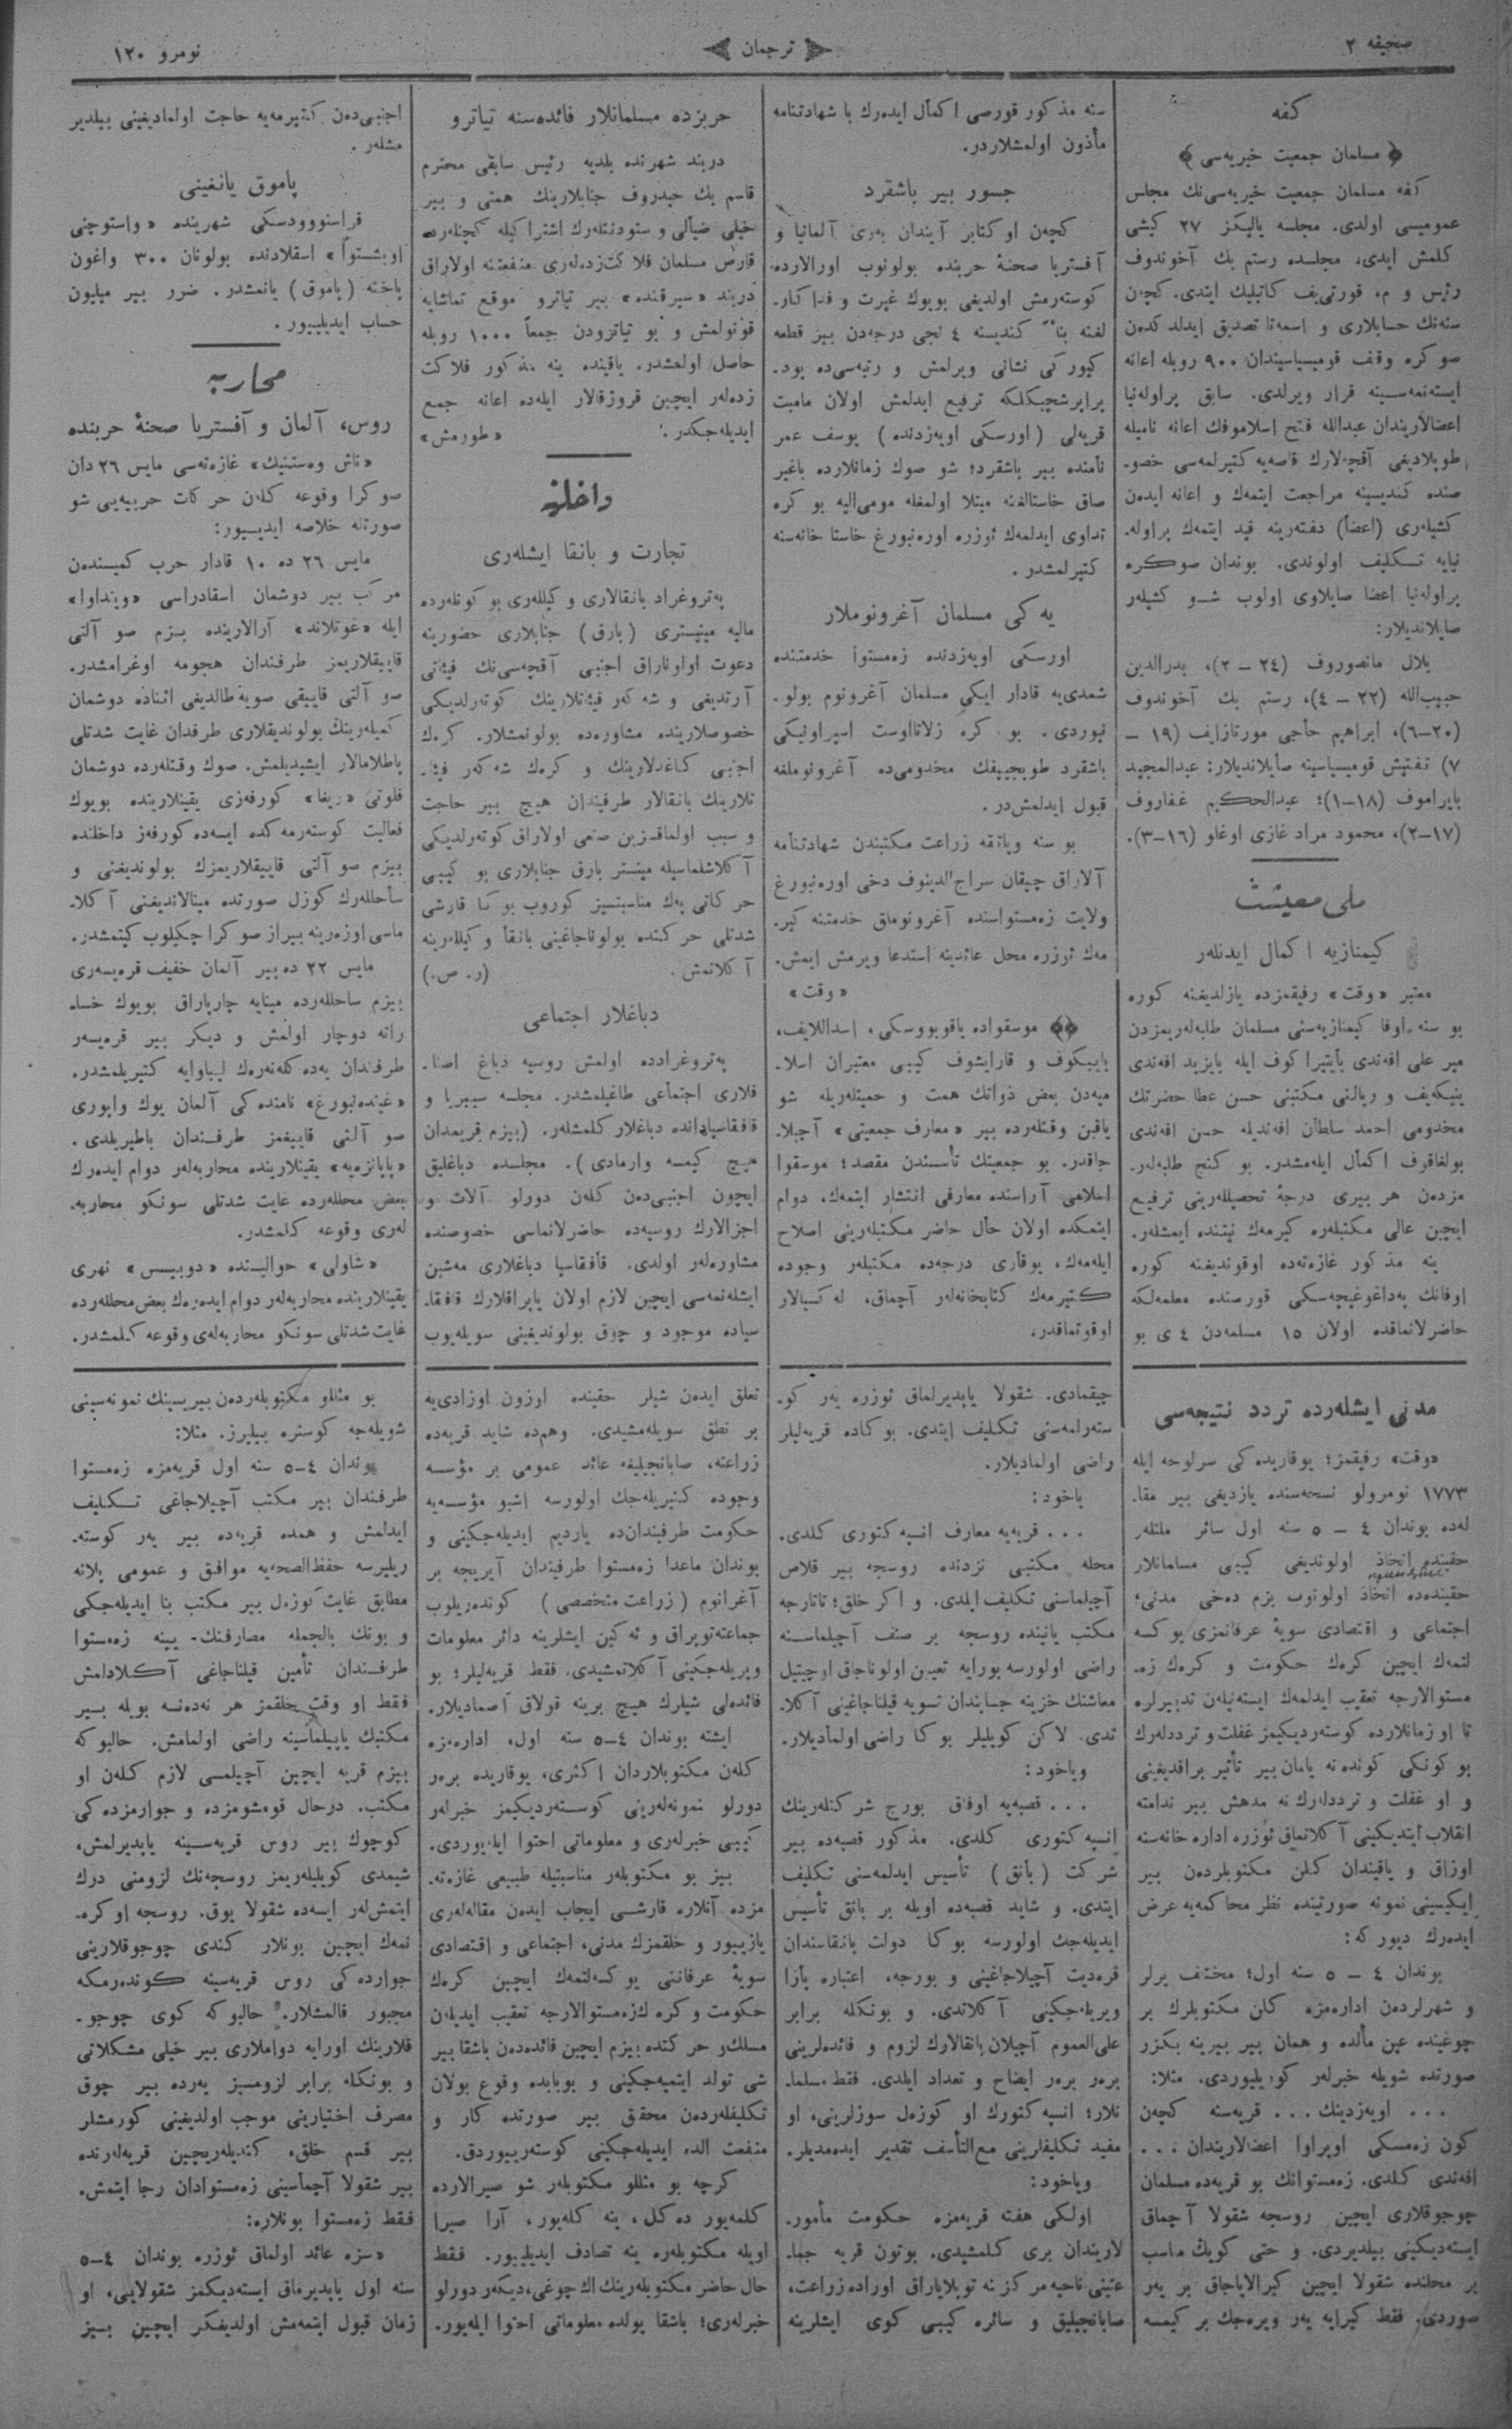 صحیفه ۲
ترجمان
نومرو ۱۲۰
کفه
﴿ مسلمان جمعیت خیریه‌سی ﴾
کفه مسلمان جمعیت خیریه‌سی‌نك مجلس
عمومیسی اولدی. مجلسه یالیکز ۲۷ کیشی
کلمش ایدی، مجلسده رستم بك آخوندوف
رئیس و م، قورتی‌یف کاتبلیك ایتدی. کچن
سنه‌نك حسابلاری و اسمه‌تا تصدیق ایدلدکدەن
صوکره وقف قومیسیاسیندان ۹۰۰ روبله اعانه
ایسته‌نمه‌سینه قرار ویرلدی. سابق پراوله‌نیا
اعضالاریندان عبدالله فتح اسلاموفك اعانه نامیله
طوپلادیغی آقچه‌لارك قاصه‌یه کتیرلمه‌سی خصو-
صنده کندیسینه مراجعت ایتمەك و اعانه ایدەن
کشیلەری (اعضا) دفتەرینه قید ایتمەك پراوله-
نیایه تکلیف اولوندی. بوندان صوکره
پراوله‌نیا اعضا صایلاوی اولوب شو کشیلەر
صایلاندیلار:
بلال مانصوروف (۲٤ – ۲)، بدرالدین
حبیب‌الله (۲۲ – ٤)، رستم بك آخوندوف
(۲۰–٦)، ابراهیم حاجی مورتازایف (۱۹ –
۷) تفتیش قومیسیاسینه صایلاندیلار: عبدالمجید
بایراموف (۱۸–۱)؛ عبدالحکیم غفاروف
(۱۷–۲)، محمود مراد غازی اوغلو (۱٦–۳).
ملی معیشت
کیمنازیه اکمال ایدنلەر
معتبر «وقت» رفیقمزده یازلدیغنه کوره
بو سنه اوفا کیمنازیه‌سنی مسلمان طلبه‌لەریمزدن
میر علی افه‌ندی بایتیراکوف ایله بایزید افه‌ندی
ینیکه‌یف و ریالنی مکتبنی حسن عطا حضرتك
مخدومی احمد سلطان افه‌ندیله حسن افه‌ندی
بولغاقوف اکمال ایله‌مشدر. بو کنج طلبه‌لەر-
مزدەن هر بیری درجهٔ تحصیللەرینی ترفیع
ایچین عالی مکتبلەره کیرمەك نیتنده ایمشلەر.
ینه مذکور غازەته‌ده اوقوندیغنه کوره
اوفانك پەداغوغیچه‌سکی قورسنده معلمه‌لکه
حاضرلانماقده اولان ۱۵ مسلمه‌دن ٤ ی بو
سنه مذکور قورصی اکمال ایدەرك با شهادتنامه
مأذون اولمشلاردر.
جسور بیر باشقرد
کچەن اوکتابر آیندان بەری آلمانیا و
آفستریا صحنهٔ حربنده بولونوب اورالارده
کوستەرمش اولدیغی بویوك غیرت و فداکار-
لغنه بناً کندیسنه ٤ نجی درجه‌دن بیر قطعه
کیورکی نشانی ویرلمش و رتبه‌سی‌ده پود-
پراپرشچیکلکه ترفیع ایدلمش اولان مامبت
قریه‌لی (اورسکی اویه‌زدنده) یوسف عمر
نامنده بیر باشقرد؛ شو صوك زمانلارده باغیر
صاق خاستالغنه مبتلا اولمغله مومی‌الیه بو کره
تداوی ایدلمەك ئوزره اورەنبورغ خاستا خانه‌سنه
کتیرلمشدر.
یه کی مسلمان آغرونوملار
اورسکی اویه‌زدنده زەمستوا خدمتنده
شمدی‌یه قادار ایکی مسلمان آغرونوم بولو-
نیوردی. بو کره زلاتااوست اسپراونیکی
باشقرد طوبجییفك مخدومی‌ده آغرونوملغه
قبول ایدلمش‌در.
بو سنه ویاتقه زراعت مکتبندن شهادتنامه
آلاراق چیقان سراج‌الدینوف دخی اورەنبورغ
ولایت زەمستواسنده آغرونوماق خدمتنه کیر-
مەك ئوزره محل عائدینه استدعا ویرمش ایمش.
«وقت»
موسقواده یاقوبووسکی، اسداللایف،
بایبیکوف و قارایشوف کیبی معتبران اسلا-
میه‌دن بعض ذواتك همت و حمیتلەریله شو
یاقین وقتلەرده بیر «معارف جمعیتی» آچیلا-
جاقدر. بو جمعیتك تأسسندن مقصد؛ موسقوا
اسلامی آراسنده معارفی انتشار ایتمەك، دوام
ایتمکده اولان حال حاضر مکتبلەرینی اصلاح
ایله‌مەك، یوقاری درجه‌ده مکتبلەر وجوده
کتیرمەك کتابخانه‌لەر آچماق، له‌کسیالار
اوقوتماقدر.
حربزده مسلمانلار فائده‌سنه تیاترو
دربند شهرنده بلدیه رئیس سابقی محترم
قاسم بك حیدروف جنابلارینك همتی و بیر
خیلی ضیالی و ستودنتلەرك اشتراکیله کچنلەرده
قارص مسلمان فلاکت‌زده‌لەری منفعتنه اولاراق
دربند «سیرقنده» بیر تیاترو موقع تماشایه
قونولمش و بو تیاترودن جمعاً ۱۰۰۰ روبله
حاصل اولمشدر. یاقینده ینه مذکور فلاکت
زده‌لەر ایچین قروژقالار ایله‌ده اعانه جمع
ایدیله‌جکدر. «طورمش»
داخلیه
تجارت و بانقا ایشلەری
پەتروغراد بانقالاری وکیللەری بو کونلەرده
مالیه مینیستری (بارق) جنابلاری حضورینه
دعوت اولوناراق اجنبی آقچه‌سی‌نك فیئاتی
آرتدیغی و شه‌کەر فیئاتلارینك کوتەرلدیکی
خصوصلارینده مشاوره‌ده بولونمشلار. کرەك
اجنبی کاغدلارینك و کرەك شه‌کەر فیئا-
تلارینك بانقالار طرفیندان هیچ بیر حاجت
و سبب اولماقزین صنعی اولاراق کوتەرلدیکی
آکلاشلماسیله مینستر بارق جنابلاری بو کیبی
حرکاتی پەك مناسبتسیز کوروب بوکا قارشی
شدتلی حرکتده بولوناجاغینی بانقا وکیللەرینه
آکلاتمش. (ر. ص.)
دباغلار اجتماعی
پەتروغرادده اولمش روسیه دباغ اصنا-
فلاری اجتماعی طاغیلمشدر. مجلسه سیبریا و
قافقاسیادانده دباغلار کلمشلەر. (بیزم قریمدان
هیچ کیمسه وارمادی). مجلسده دباغلیق
ایچون اجنبی‌دەن کلەن دورلو آلات و
اجزالارك روسیه‌ده حاضرلانماسی خصوصنده
مشاوره‌لەر اولدی. قافقاسیا دباغلاری مەشین
ایشله‌نمه‌سی ایچین لازم اولان یاپراقلارك قافقا-
سیاده موجود و چوق بولوندیغینی سویله‌یوب
اجنبی‌دەن کتیرمه‌یه حاجت اولمادیغینی بیلدیر
مشلەر.
پاموق یانغینی
قراسنوودسکی شهرینده «واستوچنی
اوبشستوا» اسقلادنده بولونان ۳۰۰ واغون
پاخته (پاموق) یانمشدر. ضرر بیر میلیون
حساب ایدیلییور.
محاربه
روس، آلمان و آفستریا صحنهٔ حربنده
«ناش وەستنیك» غازەته‌سی مایس ۲٦ دان
صوکرا وقوعه کلەن حرکات حربیه‌یی شو
صورتله خلاصه ایدییور:
مایس ۲٦ ده ۱۰ قادار حرب کمیسندەن
مرکب بیر دوشمان اسقادراسی «وینداوا»
ایله «غوتلاند» آرالارینده بزم صو آلتی
قاییقلاریمز طرفندان هجومه اوغرامشدر.
صو آلتی قاییقی صویه طالدیغی اثناده دوشمان
کمیلەرینك بولوندیقلاری طرفدان غایت شدتلی
پاطلامالار ایشیدیلمش. صوك وقتلەرده دوشمان
فلوتی «ریغا» کورفه‌زی یقینلارینده بویوك
فعالیت کوستەرمه‌کده ایسه‌ده کورفه‌ز داخلنده
بیزم صو آلتی قاییقلاریمزك بولوندیغنی و
ساحللەرك کوزل صورتده مینالاندیغنی آکلا-
ماسی اوزەرینه بیراز صوکرا چکیلوب کیتمشدر.
مایس ۲۲ ده بیر آلمان خفیف قرەیسه‌ری
بیزم ساحللەرده مینایه چارپاراق بویوك خسا-
راته دوچار اولمش و دیکر بیر قرەیسەر
طرفندان یه‌ده که‌نه‌رەك لیباوایه کتیریلمشدر.
«غیندەنبورغ» نامنده‌کی آلمان یوك واپوری
صو آلتی قاییغمز طرفندان باطیریلدی.
«پاپانزەیه» یقینلارینده محاربه‌لەر دوام ایدەرك
بعض محللەرده غایت شدتلی سونکو محاربه-
لەری وقوعه کلمشدر.
«شاولی» حوالیسنده «دوبیسس» نهری
یقینلارینده محاربه‌لەر دوام ایدەرك بعض محللەرده
غایت شدتلی سونکو محاربه‌لەی وقوعه کلمشدر.
مدنی ایشلەرده تردد نتیجه‌سی
«وقت» رفیقمز؛ یوقاریده‌کی سرلوحه ایله
۱۷۷۳ نومرولو نسخه‌سنده یازدیغی بیر مقا-
له‌ده بوندان ٤ – ۵ سنه اول سائر ملتلەر
حقینده اتخاذ اولوندیغی کیبی مسلمانلار
حقینده‌ده اتخاذ اولونوب بزم دەخی مدنی،
اجتماعی و اقتصادی سویهٔ عرفانمزی یوکسه
لتمەك ایچین کرەك حکومت و کرەك زە-
مستوالارجه تعقیب ایدلمەك ایسته‌نیلەن تدبیرلره
تا او زمانلارده کوستەردیکیمز غفلت و ترددلەرك
بو کونکی کونده نه یامان بیر تأثیر براقدیغینی
و او غفلت و ترددلەرك نه مدهش بیر ندامته
انقلاب ایتدیکینی آکلاتماق ئوزره اداره خانه‌سنه
اوزاق و یاقیندان کلن مکتوبلردەن بیر
ایکیسینی نمونه صورتینده نظر محاکمه‌یه عرض
ایدەرك دیور که:
بوندان ٤ – ۵ سنه اول؛ مختلف یرلر
و شهرلردەن اداره‌مزه کلن مکتوبلرك بر
چوغینده عین مألده و همان بیر بیرینه بکزر
صورتده شویله خبرلەر کورولیوردی. مثلا:
... اویه‌زدینك ... قریه‌سنه کچەن
کون زەمسکی اوپراوا اعضالاریندان ...
افه‌ندی کلدی. زەمستوانك بو قریه‌ده مسلمان
چوجوقلاری ایچین روسجه شقولا آچماق
ایسته‌دیکینی بیلدیردی. و حتی کویك مناسب
بر محلنده شقولا ایچین کیرالایاجاق بر یەر
صوردی. فقط کیرایه یەر ویرەجك بر کیمسه
چیقمادی. شقولا یاپدیرلماق ئوزره یەر کو-
ستەرلمه‌سنی تکلیف ایتدی. بوکاده قریه‌لیلر
راضی اولمادیلار.
یاخود:
... قریه‌یه معارف انسپه‌کتوری کلدی.
محله مکتبی نزدنده روسجه بیر قلاص
آچیلماسنی تکلیف ایلدی. و اکر خلق؛ تاتارجه
مکتب یانینده روسجه بر صنف آچیلماسنه
راضی اولورسه بورایه تعیین اولوناجاق اوچیتیل
معاشنك خزینه حسابندان تسویه قیلناجاغینی آکلا-
تدی. لاکن کویلیلر بوکا راضی اولمادیلار.
ویاخود:
... قصبه‌یه اوفاق بورج شرکتلەرینك
انسپه‌کتوری کلدی. مذکور قصبه‌ده بیر
شرکت (بانق) تأسیس ایدلمه‌سنی تکلیف
ایتدی. و شاید قصبه‌ده اویله بر بانق تأسیس
ایدیله‌جك اولورسه بوکا دولت بانقاسندان
قرەدیت آچیلاجاغینی و بورجه، اعتباره پارا
ویریله‌جکینی آکلاتدی. و بونکله برابر
علی‌العموم آچیلان بانقالارك لزوم و فائده‌لرینی
بره‌ر بره‌ر ایضاح و تعداد ایلدی. فقط مسلما-
نلار؛ انسپه‌کتورك او کوزەل سوزلرینی، او
مفید تکلیفلرینی مع‌التأسف تقدیر ایده‌مدیلر.
ویاخود:
اولکی هفته قریه‌مزه حکومت مأمور-
لاریندان بری کلمشیدی. بوتون قریه جما-
عتینی ناحیه مرکزنه توپلایاراق اوراده زراعت،
صابانجیلیق و سائره کیبی کوی ایشلرینه
تعلق ایدەن شیلر حقینده اوزون اوزادی‌یه
بر نطق سویله‌مشیدی. وهم‌ده شاید قریه‌ده
زراعته، صابانجیلیغه عائد عمومی بر مؤسسه
وجوده کتیریله‌جك اولورسه اشبو مؤسسه‌یه
حکومت طرفیندان‌ده یاردیم ایدیله‌جکینی و
بوندان ماعدا زەمستوا طرفیندان آیریجه بر
آغرانوم (زراعت متخصصی) کوندەریلوب
جماعته توپراق و ئه‌کین ایشلرینه دائر معلومات
ویریله‌جکینی آکلاتمشیدی. فقط قریه‌لیلر؛ بو
فائده‌لی شیلرك هیچ برینه قولاق آصمادیلار.
ایشته بوندان ٤–۵ سنه اول، اداره‌مزه
کلەن مکتوبلاردان اکثری، یوقاریده بره‌ر
دورلو نمونه‌لەرینی کوستەردیکیمز خبرلەر
کیبی خبرلەری و معلوماتی احتوا ایله‌یوردی.
بیز بو مکتوبلەر مناسبتیله طبیعی غازەته-
مزده آنلاره قارشی ایجاب ایدەن مقاله‌لەری
یازییور و خلقمزك مدنی، اجتماعی و اقتصادی
سویهٔ عرفاننی یوکسه‌لتمەك ایچین کرەك
حکومت و کرەك زەمستوالارجه تعقیب ایدیلەن
مسلك و حرکتده بیزم ایچین فائده‌دەن باشقا بیر
شی تولد ایتمیه‌جکینی و بوبابده وقوع بولان
تکلیفلەردەن محقق بیر صورتده کار و
منفعت الده ایدیله‌جکینی کوستەرییوردق.
کرچه بو مثللو مکتوبلەر شو صیرالارده
کلمه‌یور ده‌کل، ینه کله‌یور، آرا صیرا
اویله مکتوبلەره ینه تصادف ایدیلییور. فقط
حال حاضر مکتوبلەرینك اك چوغی، دیکەر دورلو
خبرلەری؛ باشقا یولده معلوماتی احتوا ایله‌یور.
بو مثللو مکتوبلەردەن بیریسینك نمونه‌سینی
شویله‌جه کوستره بیلیرز. مثلا:
بوندان ٤–۵ سنه اول قریه‌مزه زەمستوا
طرفندان بیر مکتب آچیلاجاغی تکلیف
ایدلمش و همده قریه‌ده بیر یەر کوسته-
ریلیرسه حفظ‌الصحه‌یه موافق و عمومی پلانه
مطابق غایت کوزەل بیر مکتب بنا ایدیله‌جکی
و بونك بالجمله مصارفنك ینه زەمستوا
طرفندان تأمین قیلناجاغی آکلادلمش
فقط او وقت خلقمز هر نه‌ده‌نسه بویله بیر
مکتبك یاپیلماسینه راضی اولمامش. حالبوکه
بیزم قریه ایچین آچیلمسی لازم کلەن او
مکتب. درحال قومشومزده و جوارمزده‌کی
کوچوك بیر روس قریه‌سینه یاپدیرلمش،
شیمدی کویلیلەریمز روسجه‌نك لزومنی درك
ایتمش‌لەر ایسه‌ده شقولا یوق. روسجه اوکره-
تمەك ایچین بونلار کندی چوجوقلارینی
جوارده‌کی روس قریه‌سینه کوندەرمکه
مجبور قالمشلار. حالبوکه کوی چوجو-
قلارینك اورایه دواملاری بیر خیلی مشکلاتی
و بونکله برابر لزومسیز یەرده بیر چوق
مصرف اختیارینی موجب اولدیغینی کورمشلر
بیر قسم خلق، کندیلەریچین قریه‌لەرنده
بیر شقولا آچماسینی زەمستوادان رجا ایتمش.
فقط زەمستوا بونلاره:
«سزه عائد اولماق ئوزره بوندان ٤–۵
سنه اول یاپدیرماق ایسته‌دیکمز شقولایی، او
زمان قبول ایتمه‌مش اولدیغکز ایچین بسیز